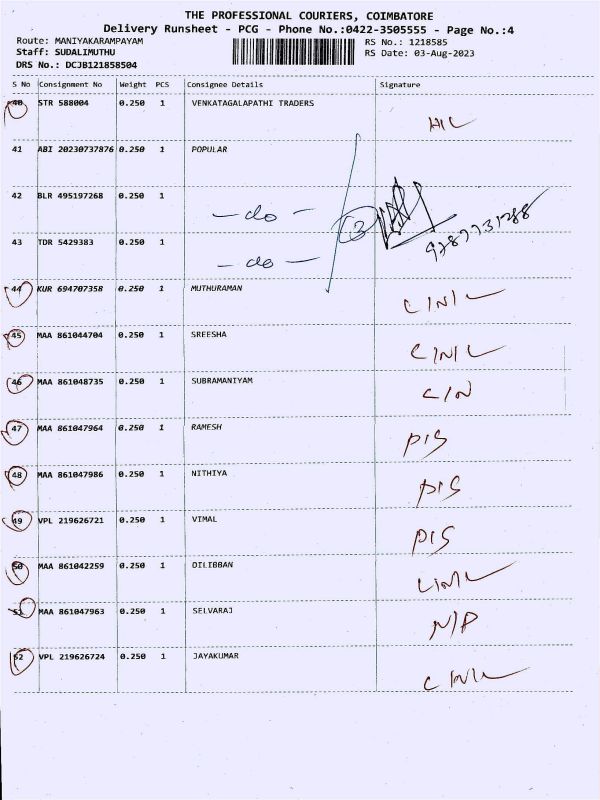 THE PROFESSIONAL COURIERS, COIMBATORE
Delivery Runsheet - PCG - Phone No.:0422-3505555 - Page No.:4
Route: MANIYAKARAMPAYAM RS No.: 1218585
Staff: SUDALIMUTHU RS Date: 03-Aug-2023
DRS No.: DCJB121858504
S No Consignment No Weight PCS Consignee Details Signature
40 STR 588004 0.250 1 VENKATAGALAPATHI TRADERS
H/L
41 ABI 20230737876 0.250 1 POPULAR
42 BLR 495197268 0.250 1
- do -
3
9787731788
43 TDR 5429383 0.250 1
- do -
44 KUR 694707358 0.250 1 MUTHURAMAN
C/N/L
45 MAA 861044704 0.250 1 SREESHA
C/N/L
46 MAA 861048735 0.250 1 SUBRAMANIYAM
C/N
47 MAA 861047964 0.250 1 RAMESH
P/S
48 MAA 861047986 0.250 1 NITHIYA
P/S
49 VPL 219626721 0.250 1 VIMAL
P/S
50 MAA 861042259 0.250 1 DILIBBAN
C/N/L
51 MAA 861047963 0.250 1 SELVARAJ
N/P
52 VPL 219626724 0.250 1 JAYAKUMAR
C/N/L